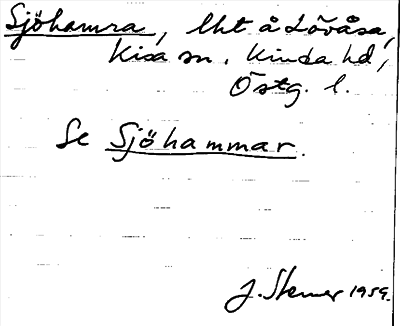 Sjöhamra, lht å Lövåsa,
Kisa sn, Kinda hd,
Östg. l.
Se Sjöhammar.
J. Stemer 1959.